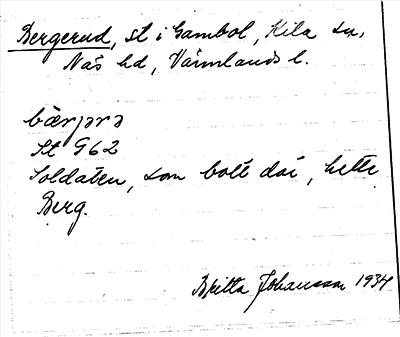 Bergerud, st i Gambol, Kila sn,
Näs hd, Värmlands l.
bærjərə
St G62
Soldaten, som bott där, hette
Berg.
Britta Johansson 1934